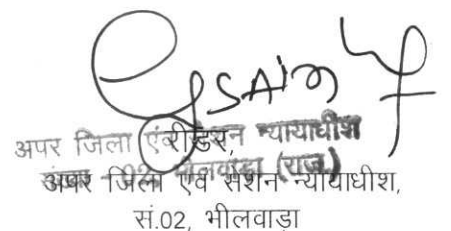 अपर जिला एवं सेशन न्यायाधीश
भीलवाड़ा (राज.)
अपर जिला एवं सेशन न्यायाधीश,
सं.02, भीलवाड़ा